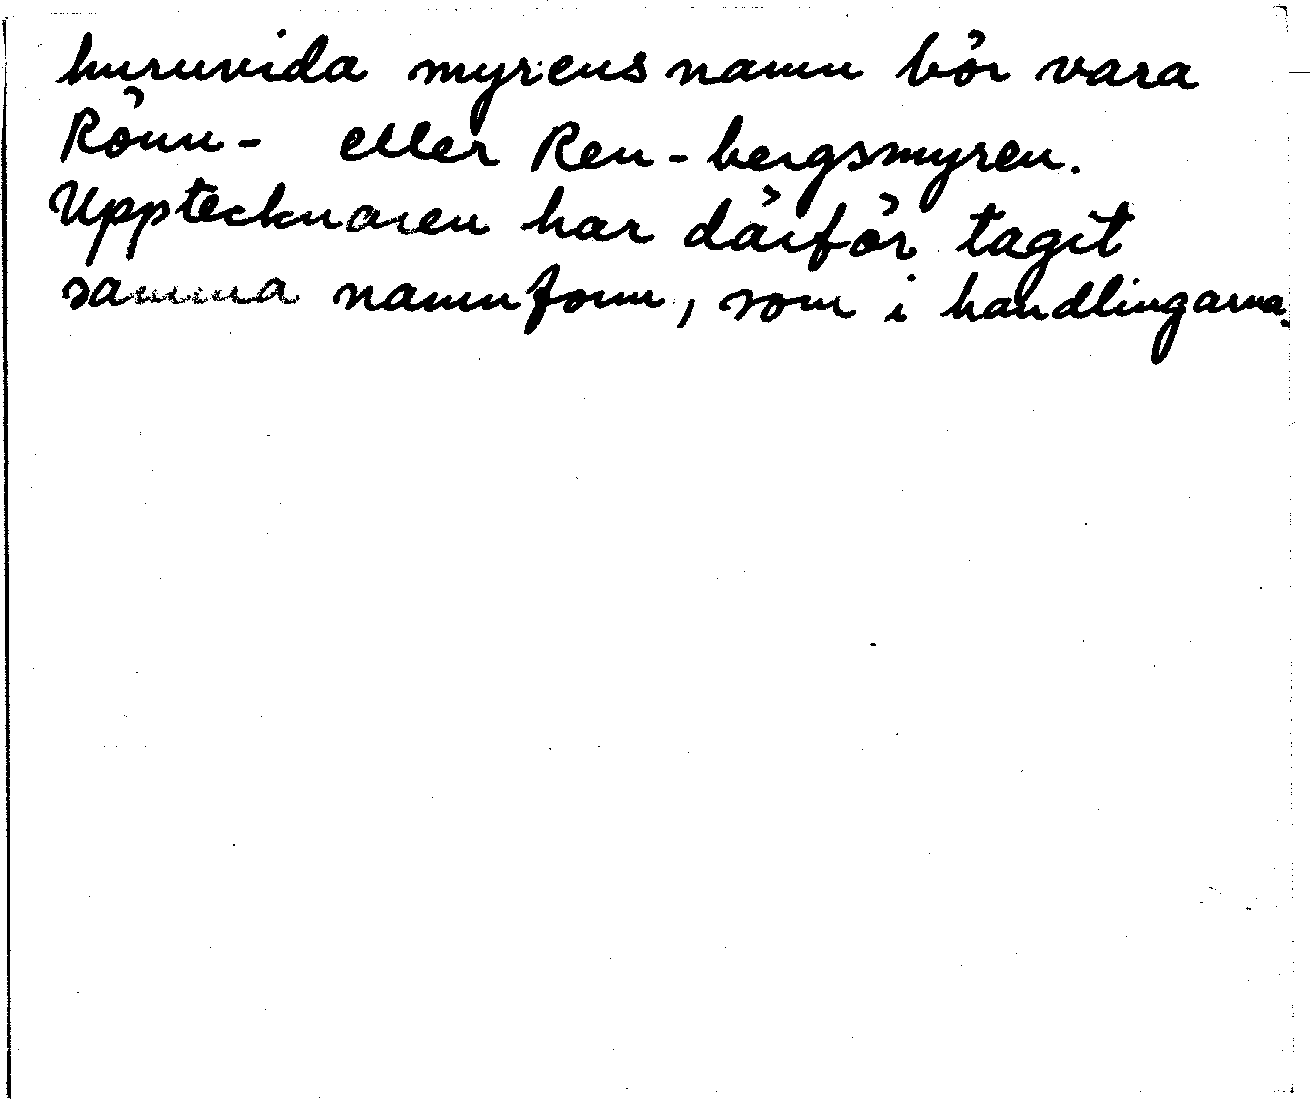 huruvida myrens namn bör vara
Rönn- eller Ren-bergsmyren.
Upptecknaren har därför tagit
samma namnform, som i handlingarna.